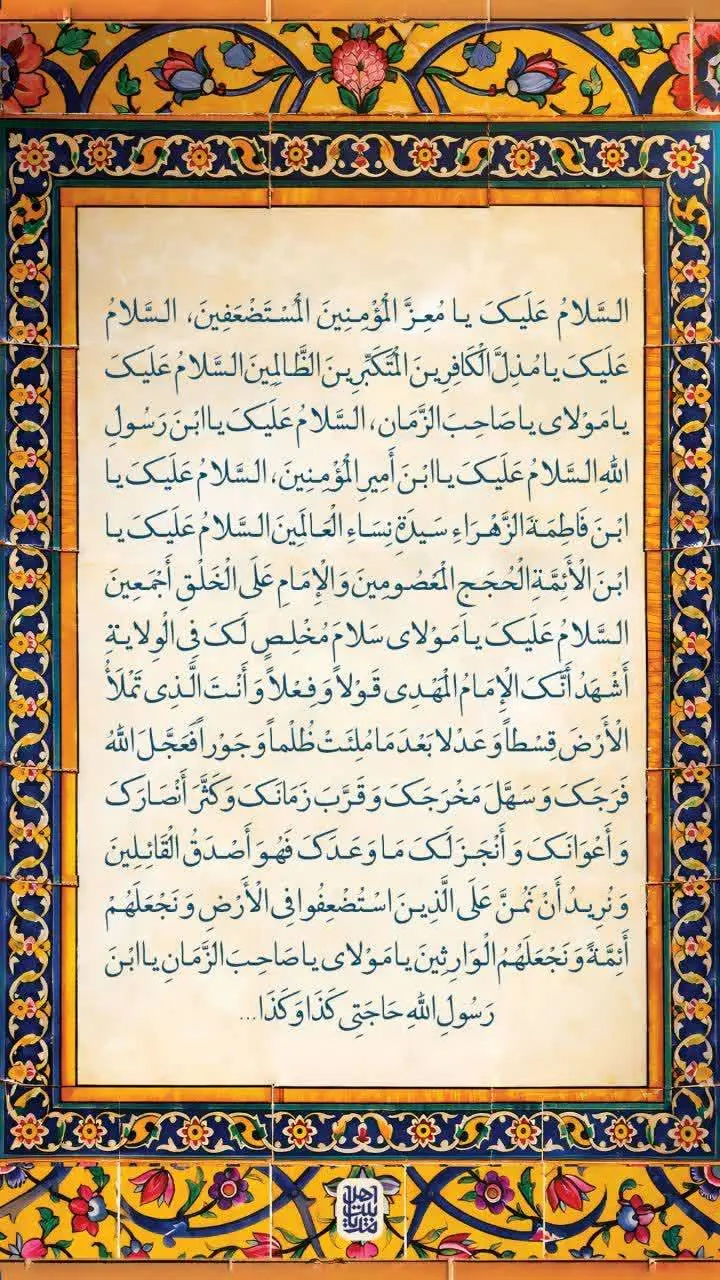 السَّلامُ عَلَیکَ یا مُعِزَّ الْمُؤْمِنِینَ الْمُسْتَضْعَفِینَ، السَّلامُ
عَلَیکَ یا مُذِلَّ الْکَافِرِینَ الْمُتَکَبِّرِینَ الظَّالِمِینَ السَّلامُ عَلَیکَ
یا مَوْلای یا صَاحِبَ الزَّمَانِ، السَّلامُ عَلَیکَ یا ابْنَ رَسُولِ
اللهِ السَّلامُ عَلَیکَ یا ابْنَ أَمِیرِ الْمُؤْمِنِینَ، السَّلامُ عَلَیکَ یا
ابْنَ فَاطِمَةَ الزَّهْرَاءِ سَیدَةِ نِسَاءِ الْعَالَمِینَ السَّلامُ عَلَیکَ یا
ابْنَ الْأَئِمَّةِ الْحُجَجِ الْمَعْصُومِینَ وَ الْإِمَامِ عَلَی الْخَلْقِ أَجْمَعِینَ
السَّلامُ عَلَیکَ یا مَوْلای سَلامَ مُخْلِصٍ لَکَ فِی الْوِلایةِ
أَشْهَدُ أَنَّکَ الْإِمَامُ الْمَهْدِی قَوْلاً وَ فِعْلاً وَ أَنْتَ الَّذِی تَمْلَأُ
الْأَرْضَ قِسْطاً وَ عَدْلا بَعْدَ مَا مُلِئَتْ ظُلْماً وَ جَوْراً فَعَجَّلَ اللهُ
فَرَجَکَ وَ سَهَّلَ مَخْرَجَکَ وَ قَرَّبَ زَمَانَکَ وَ کَثَّرَ أَنْصَارَکَ
وَ أَعْوَانَکَ وَ أَنْجَزَ لَکَ مَا وَعَدَکَ فَهُوَ أَصْدَقُ الْقَائِلِینَ
وَ نُرِیدُ أَنْ نَمُنَّ عَلَی الَّذِینَ اسْتُضْعِفُوا فِی الْأَرْضِ وَ نَجْعَلَهُمْ
أَئِمَّةً وَ نَجْعَلَهُمُ الْوَارِثِینَ یا مَوْلای یا صَاحِبَ الزَّمَانِ یا ابْنَ
رَسُولِ اللهِ حَاجَتِی کَذَا وَ کَذَا...